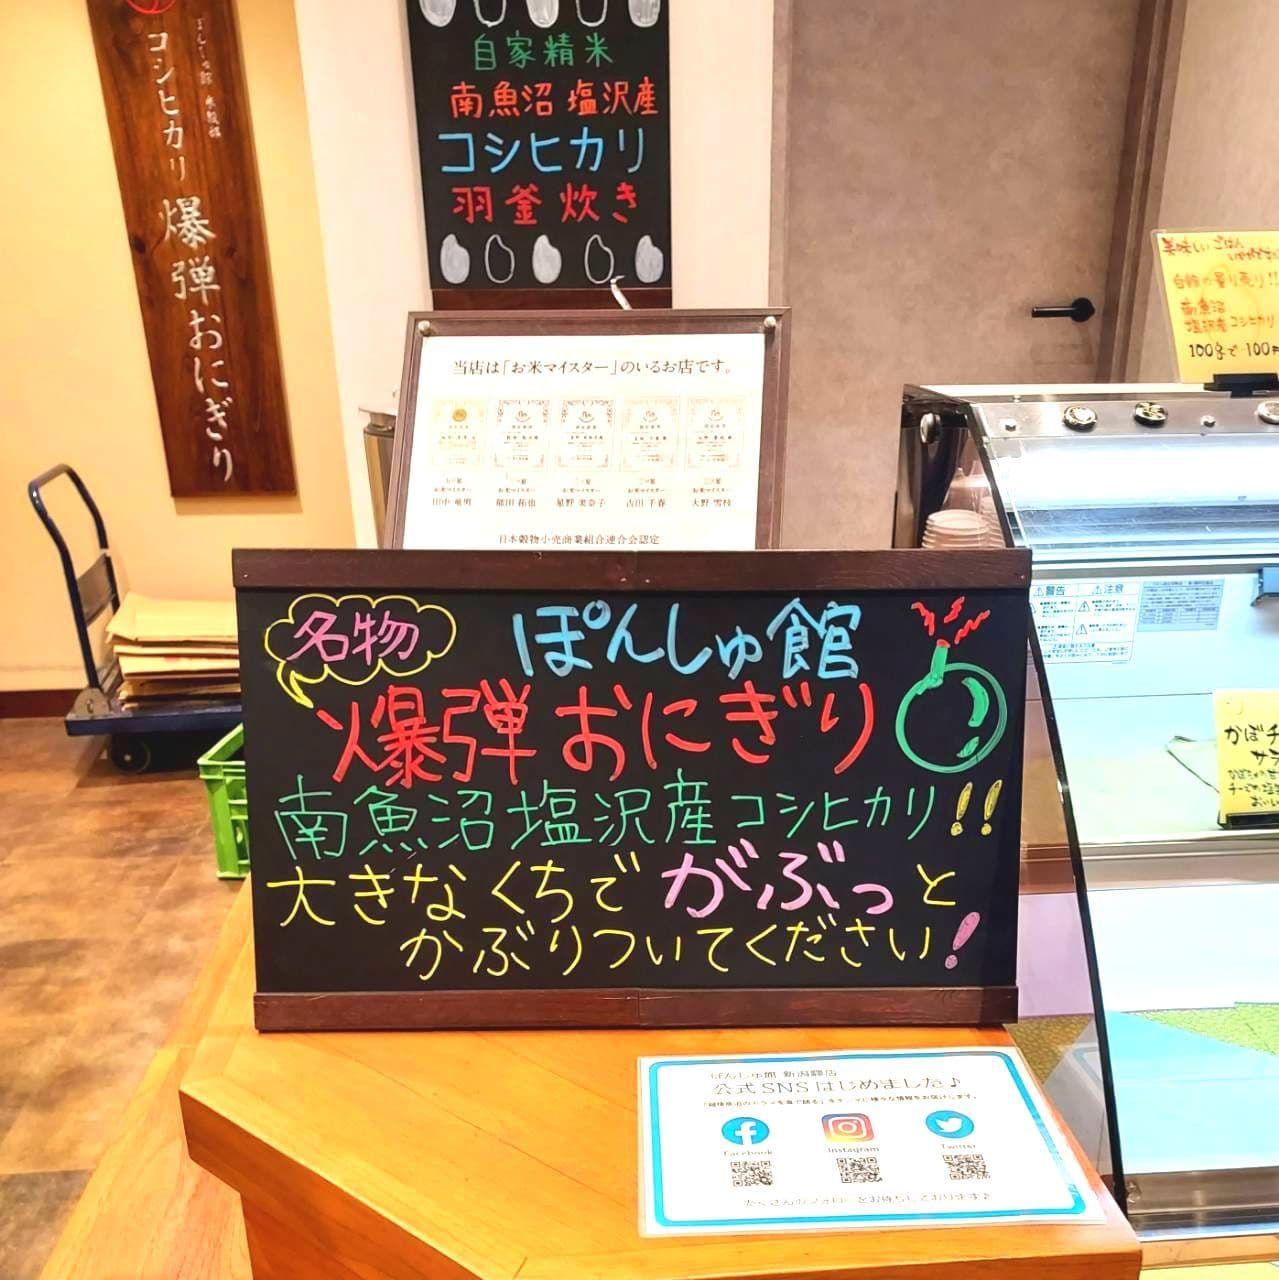 コシヒカリ 爆弾おにぎり
自家精米
南魚沼 塩沢産
コシヒカリ
羽釜炊き
美味しいごはん
いかがですか
白飯の量り売り!!
南魚沼
塩沢産コシヒカリ
100gで100円
当店は「お米マイスター」のいるお店です。
お米マイスター お米マイスター お米マイスター お米マイスター お米マイスター
田中 竜男 稲田 拓也 星野 美奈子 吉田 千春 大野 雪枝
日本穀物小売商業組合連合会認定
警告 注意
名物 ぽんしゅ館
爆弾おにぎり
南魚沼塩沢産コシヒカリ!!
大きなくちでがぶっと
かぶりついてください!
かぼチ
サラ
ぽんしゅ館 新潟驛店
公式SNSはじめました♪
Facebook Instagram Twitter
たくさんのフォローをお待ちしております♪